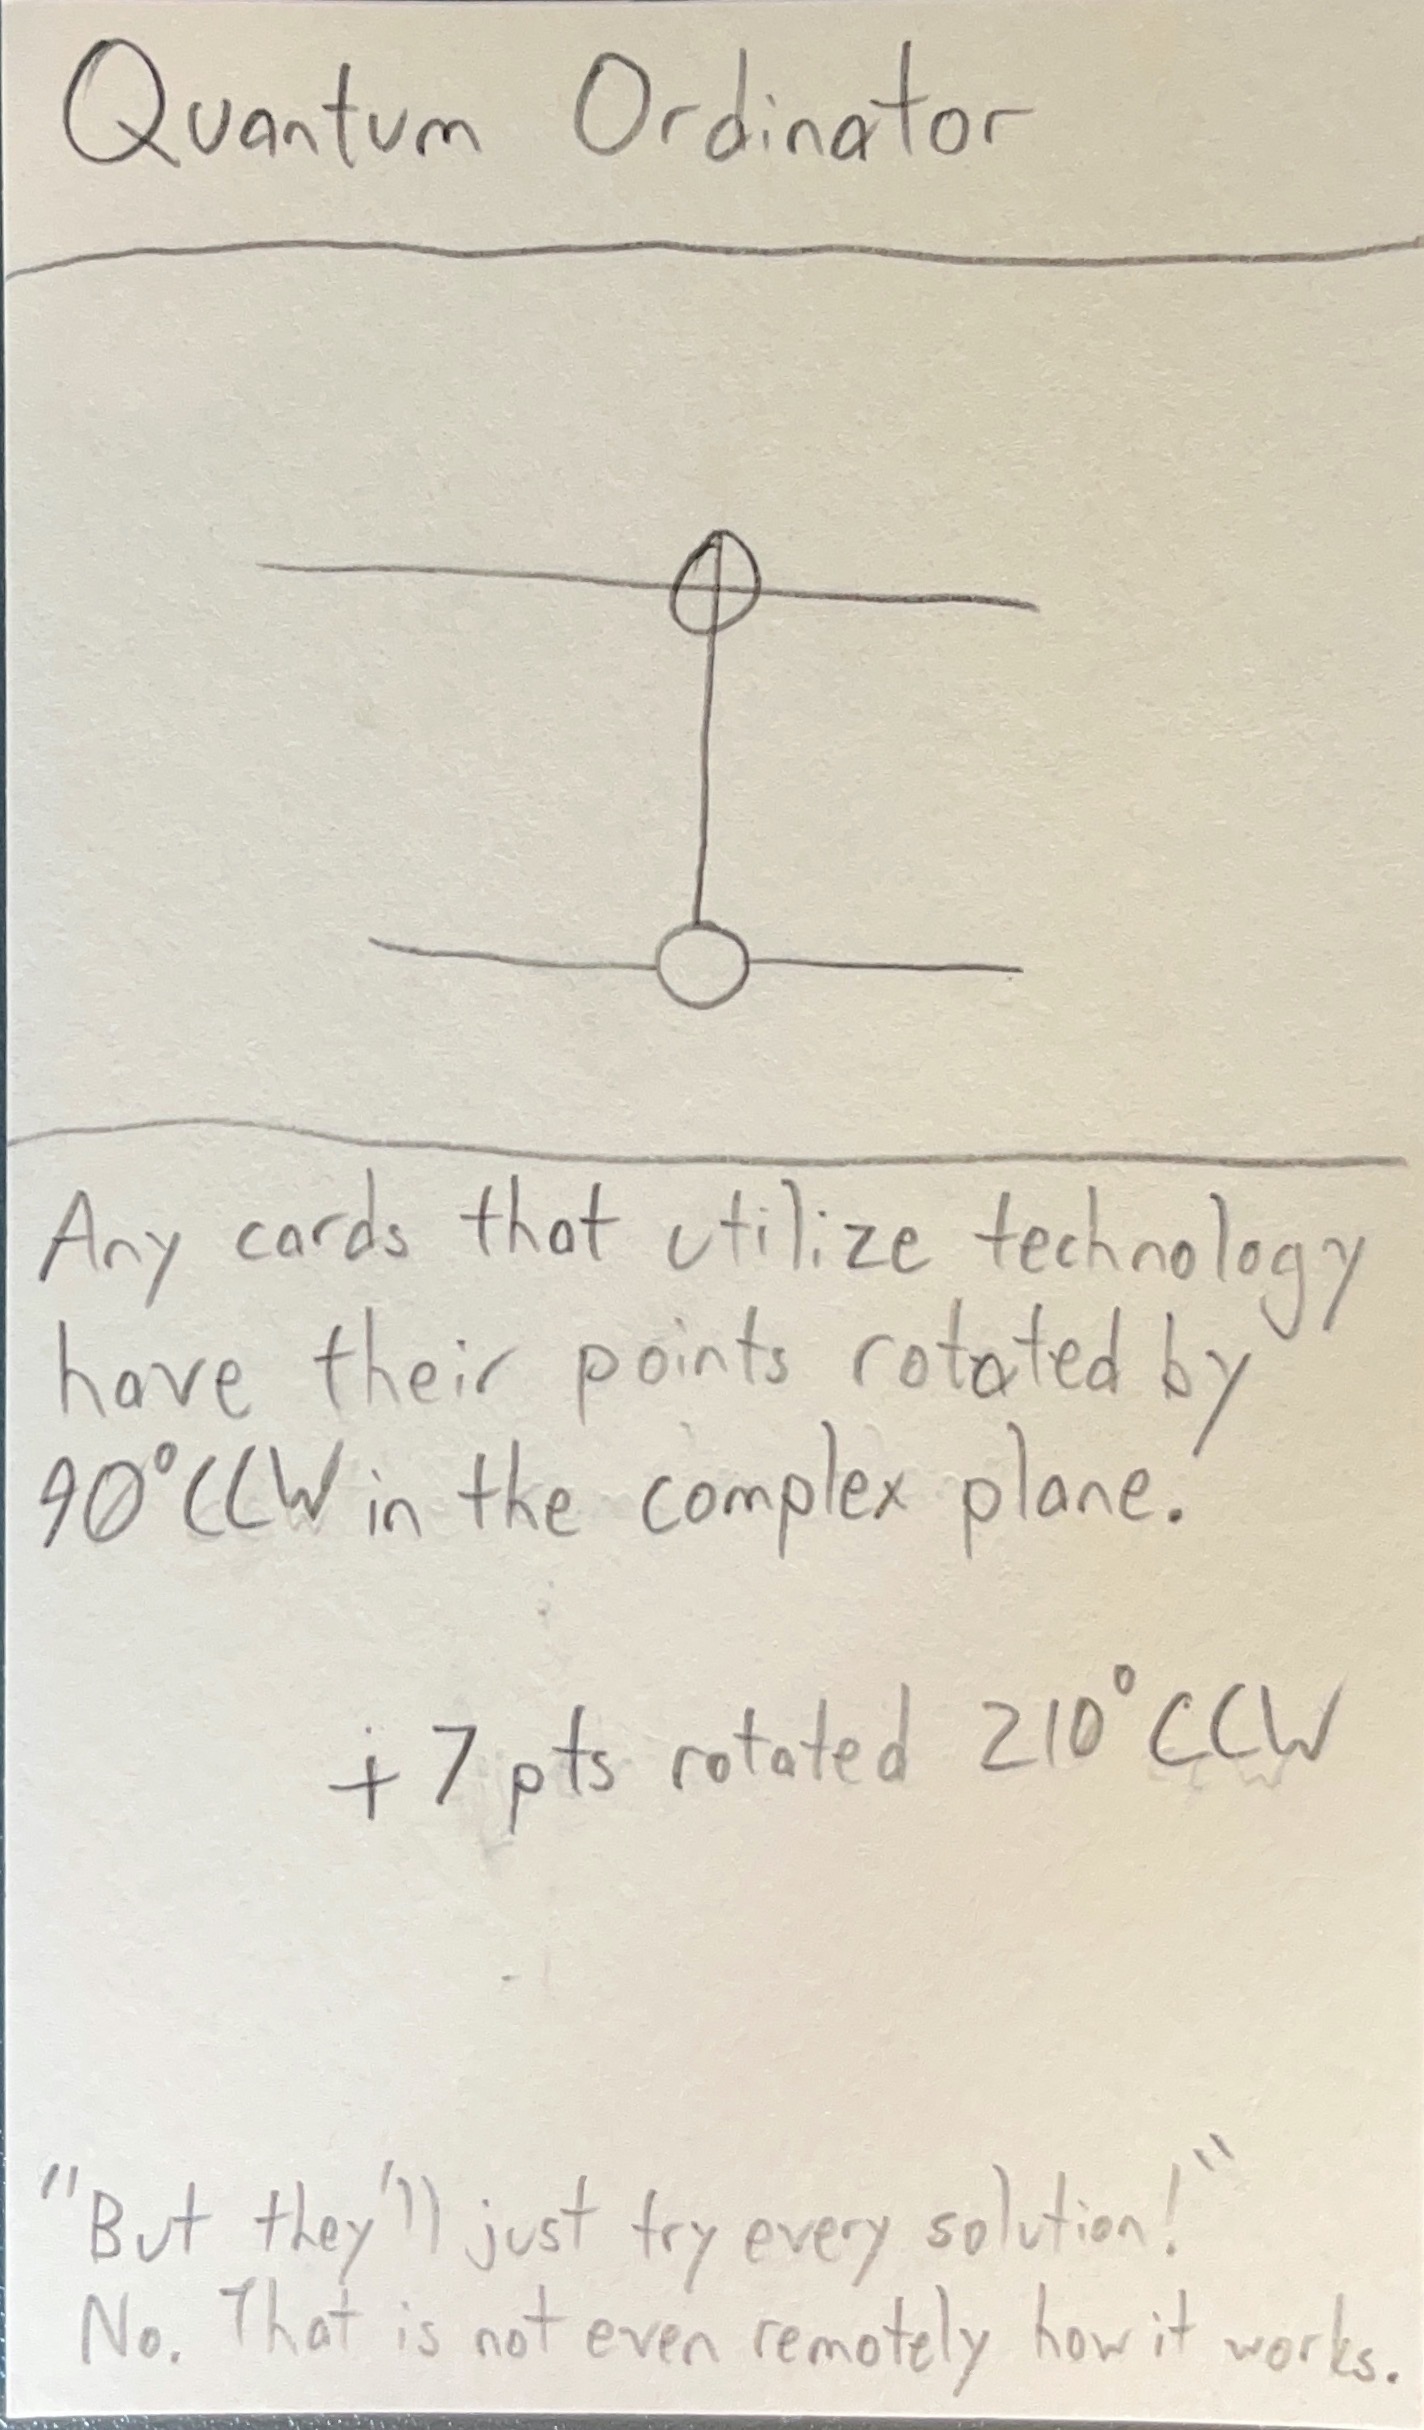 Quantum Ordinator
Any cards that utilize technology
have their points rotated by
90°CCW in the complex plane.
+7 pts rotated 210°CCW
"But they'll just try every solution!"
No. That is not even remotely how it works.